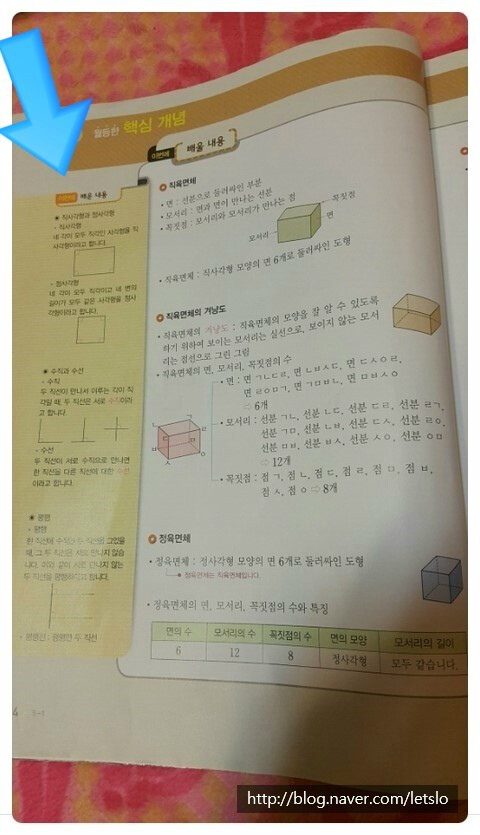 월등한 핵심 개념
이번에 배울 내용
이전에 배운 내용
직사각형과 정사각형
· 직사각형
네 각이 모두 직각인 사각형을 직
사각형이라고 합니다.
· 정사각형
네 각이 모두 직각이고 네 변의
길이가 모두 같은 사각형을 정사
각형이라고 합니다.
수직과 수선
· 수직
두 직선이 만나서 이루는 각이 직
각일 때, 두 직선은 서로 수직이라
고 합니다.
· 수선
두 직선이 서로 수직으로 만나면
한 직선을 다른 직선에 대한 수선
이라고 합니다.
평행
· 평행
한 직선에 수직인 두 직선을 그었을
때, 그 두 직선은 서로 만나지 않습
니다. 이와 같이 서로 만나지 않는
두 직선을 평행하다고 합니다.
· 평행선 : 평행한 두 직선
직육면체
· 면 : 선분으로 둘러싸인 부분
· 모서리 : 면과 면이 만나는 선분
· 꼭짓점 : 모서리와 모서리가 만나는 점
꼭짓점
면
모서리
· 직육면체 : 직사각형 모양의 면 6개로 둘러싸인 도형
직육면체의 겨냥도
· 직육면체의 겨냥도 : 직육면체의 모양을 잘 알 수 있도록
하기 위하여 보이는 모서리는 실선으로, 보이지 않는 모서
리는 점선으로 그린 그림
· 직육면체의 면, 모서리, 꼭짓점의 수
· 면 : 면 ㄱㄴㄷㄹ, 면 ㄴㅂㅅㄷ, 면 ㄷㅅㅇㄹ,
면 ㄹㅇㅁㄱ, 면 ㄱㅁㅂㄴ, 면 ㅁㅂㅅㅇ
⇨ 6개
· 모서리 : 선분 ㄱㄴ, 선분 ㄴㄷ, 선분 ㄷㄹ, 선분 ㄹㄱ,
선분 ㄱㅁ, 선분 ㄴㅂ, 선분 ㄷㅅ, 선분 ㄹㅇ,
선분 ㅁㅂ, 선분 ㅂㅅ, 선분 ㅅㅇ, 선분 ㅇㅁ
⇨ 12개
· 꼭짓점 : 점 ㄱ, 점 ㄴ, 점 ㄷ, 점 ㄹ, 점 ㅁ, 점 ㅂ,
점 ㅅ, 점 ㅇ ⇨ 8개
정육면체
· 정육면체 : 정사각형 모양의 면 6개로 둘러싸인 도형
정육면체는 직육면체입니다.
· 정육면체의 면, 모서리, 꼭짓점의 수와 특징
면의 수 모서리의 수 꼭짓점의 수 면의 모양 모서리의 길이
6 12 8 정사각형 모두 같습니다.
4 5-1
http://blog.naver.com/letslo